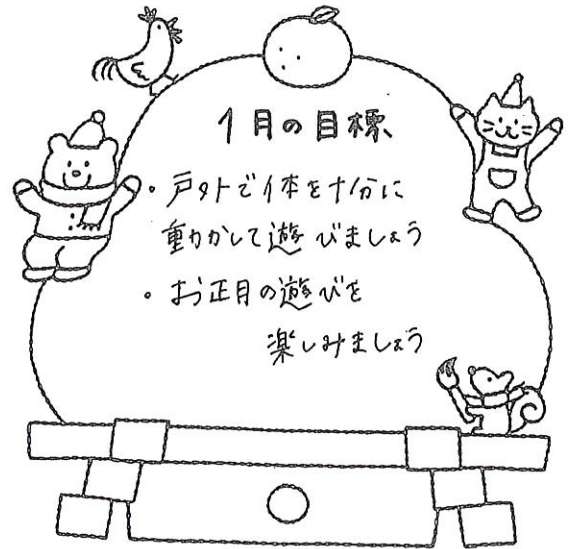 1月の目標
・戸外で体を十分に
動かして遊びましょう
・お正月の遊びを
楽しみましょう